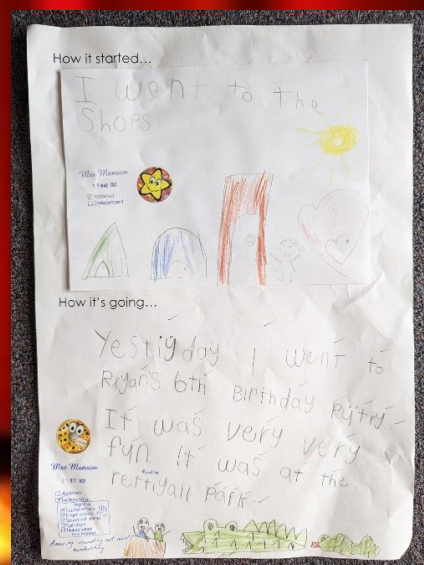 How it started...
I went to the
Shops
Mrs Manson
Assisted
Independent
How it's going...
Yestigday I went to
Riyan's 6th Birthday Pytry
It was very very
fun it was at the
rettiyall Park.
Mrs Manson
Assisted